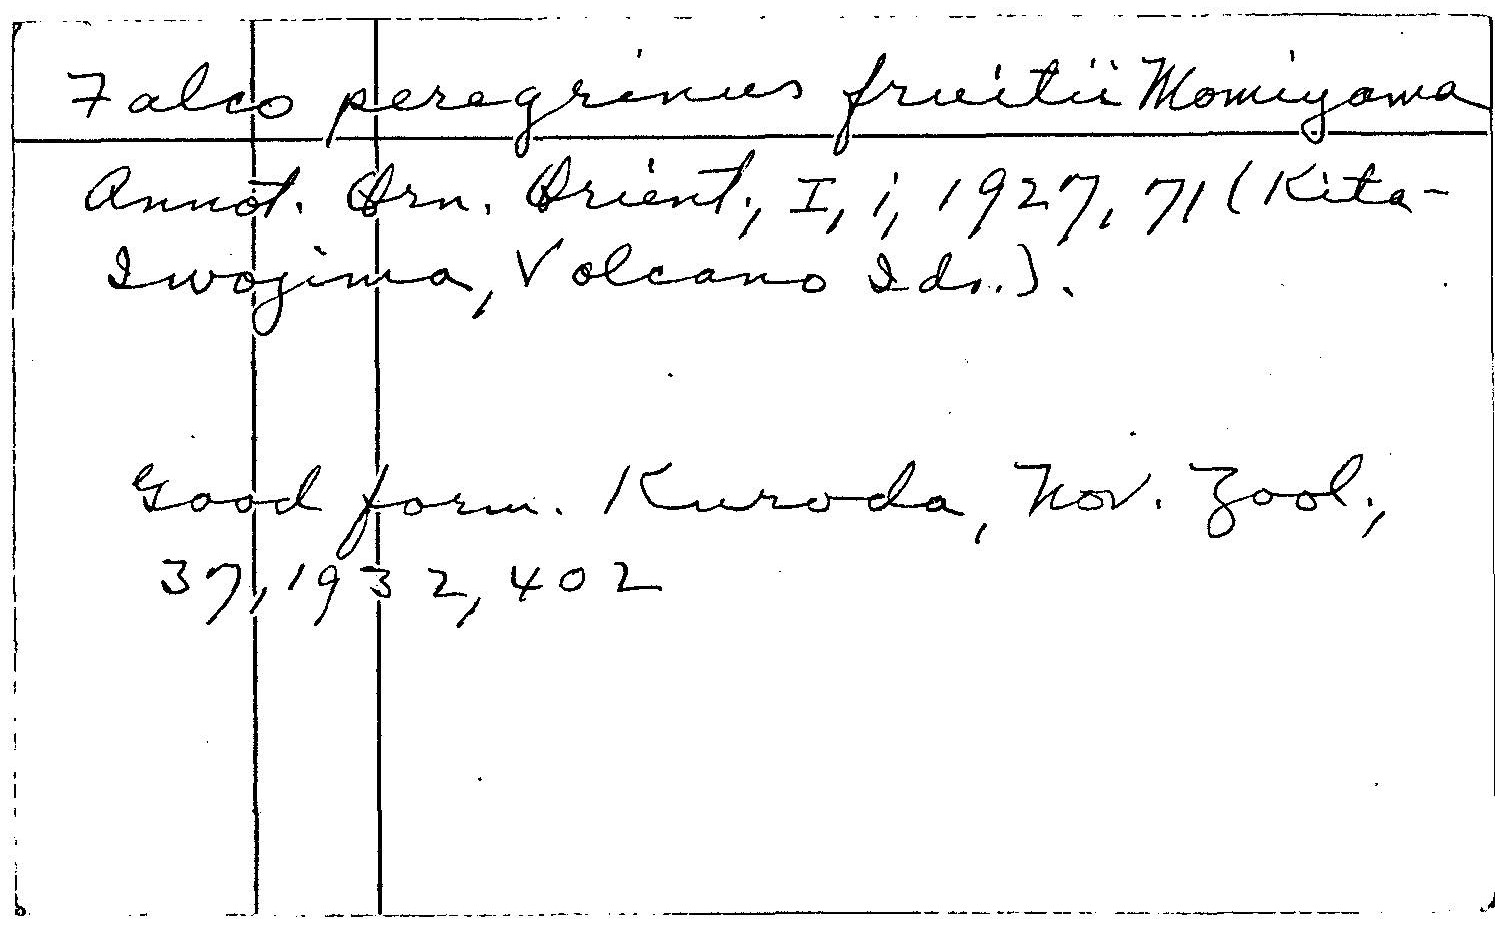 Falco peregrinus fruitii Momiyama
Annot. Orn. Orient., I, i, 1927, 71 (Kita-
Iwojima, Volcano Ids.).
Good form. Kuroda, Nov. Zool.,
37, 1932, 402